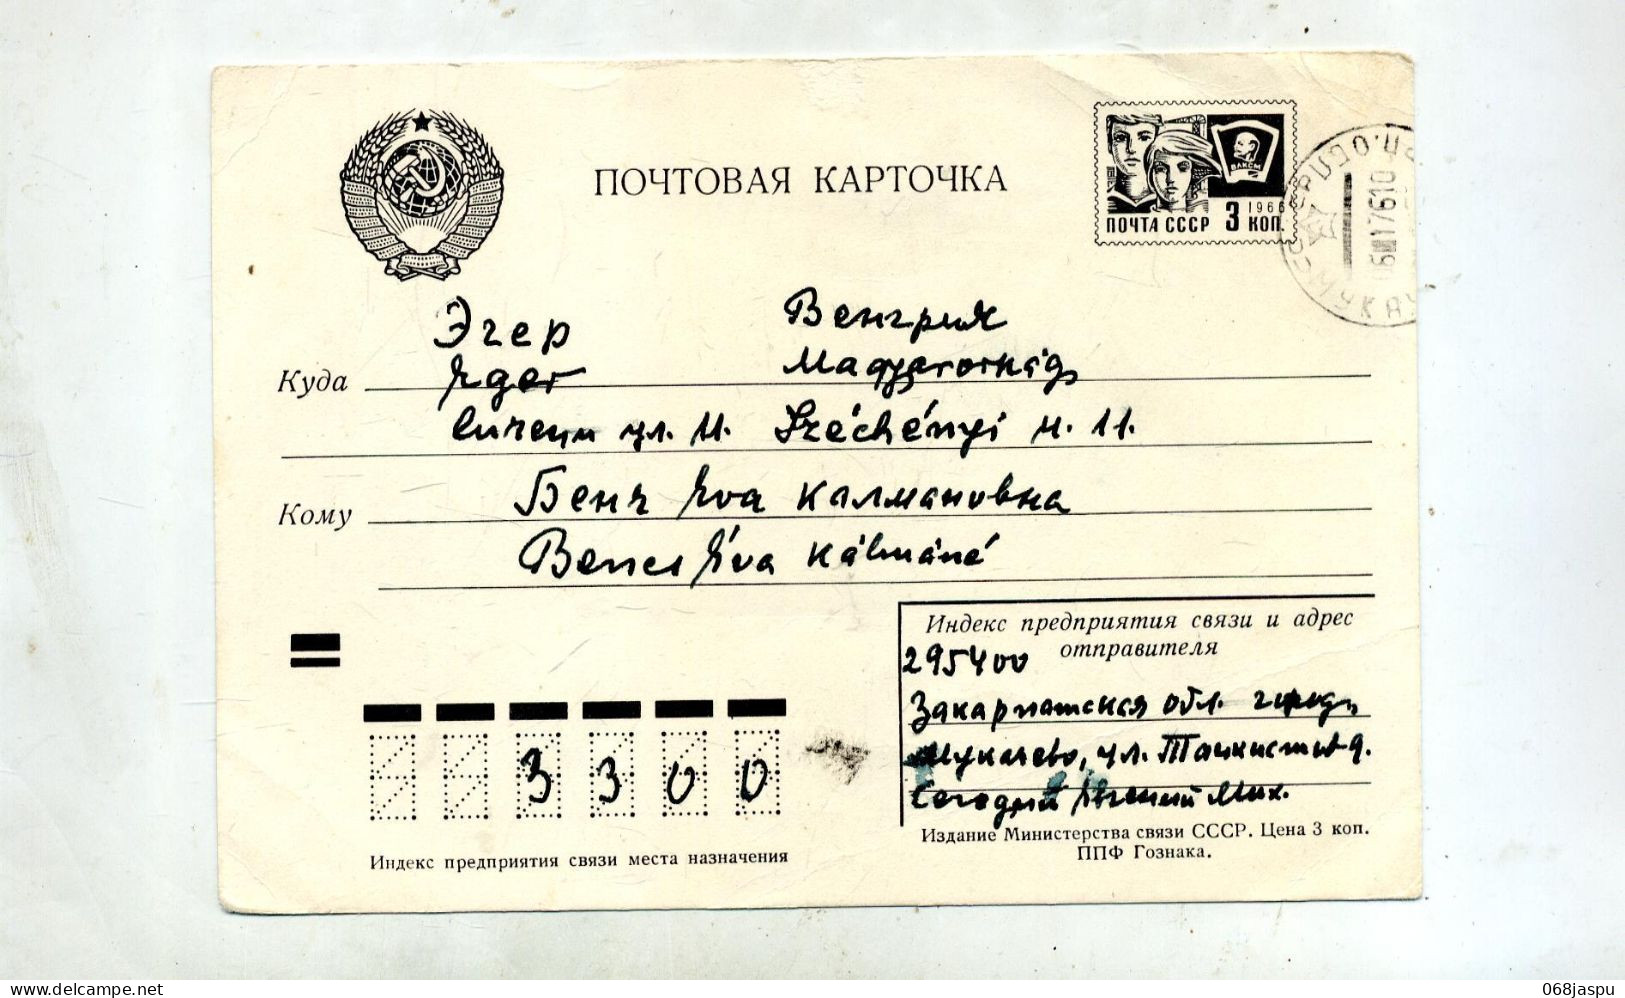 ПОЧТОВАЯ КАРТОЧКА
ВЛКСМ
1966
ПОЧТА СССР 3 КОП.
Эгер Венгрия
Куда Eger Magyarország
ул. Széchényi н. 11.
Кому Бенч Ева Калмановна
Bencs Éva Kálmáné
Индекс предприятия связи и адрес
отправителя
295400
Закарпатская обл. город
Мукачево, ул. Танкистов 9.
Мих.
3300
Индекс предприятия связи места назначения
Издание Министерства связи СССР. Цена 3 коп.
ППФ Гознака.
068jaspu
delcampe.net